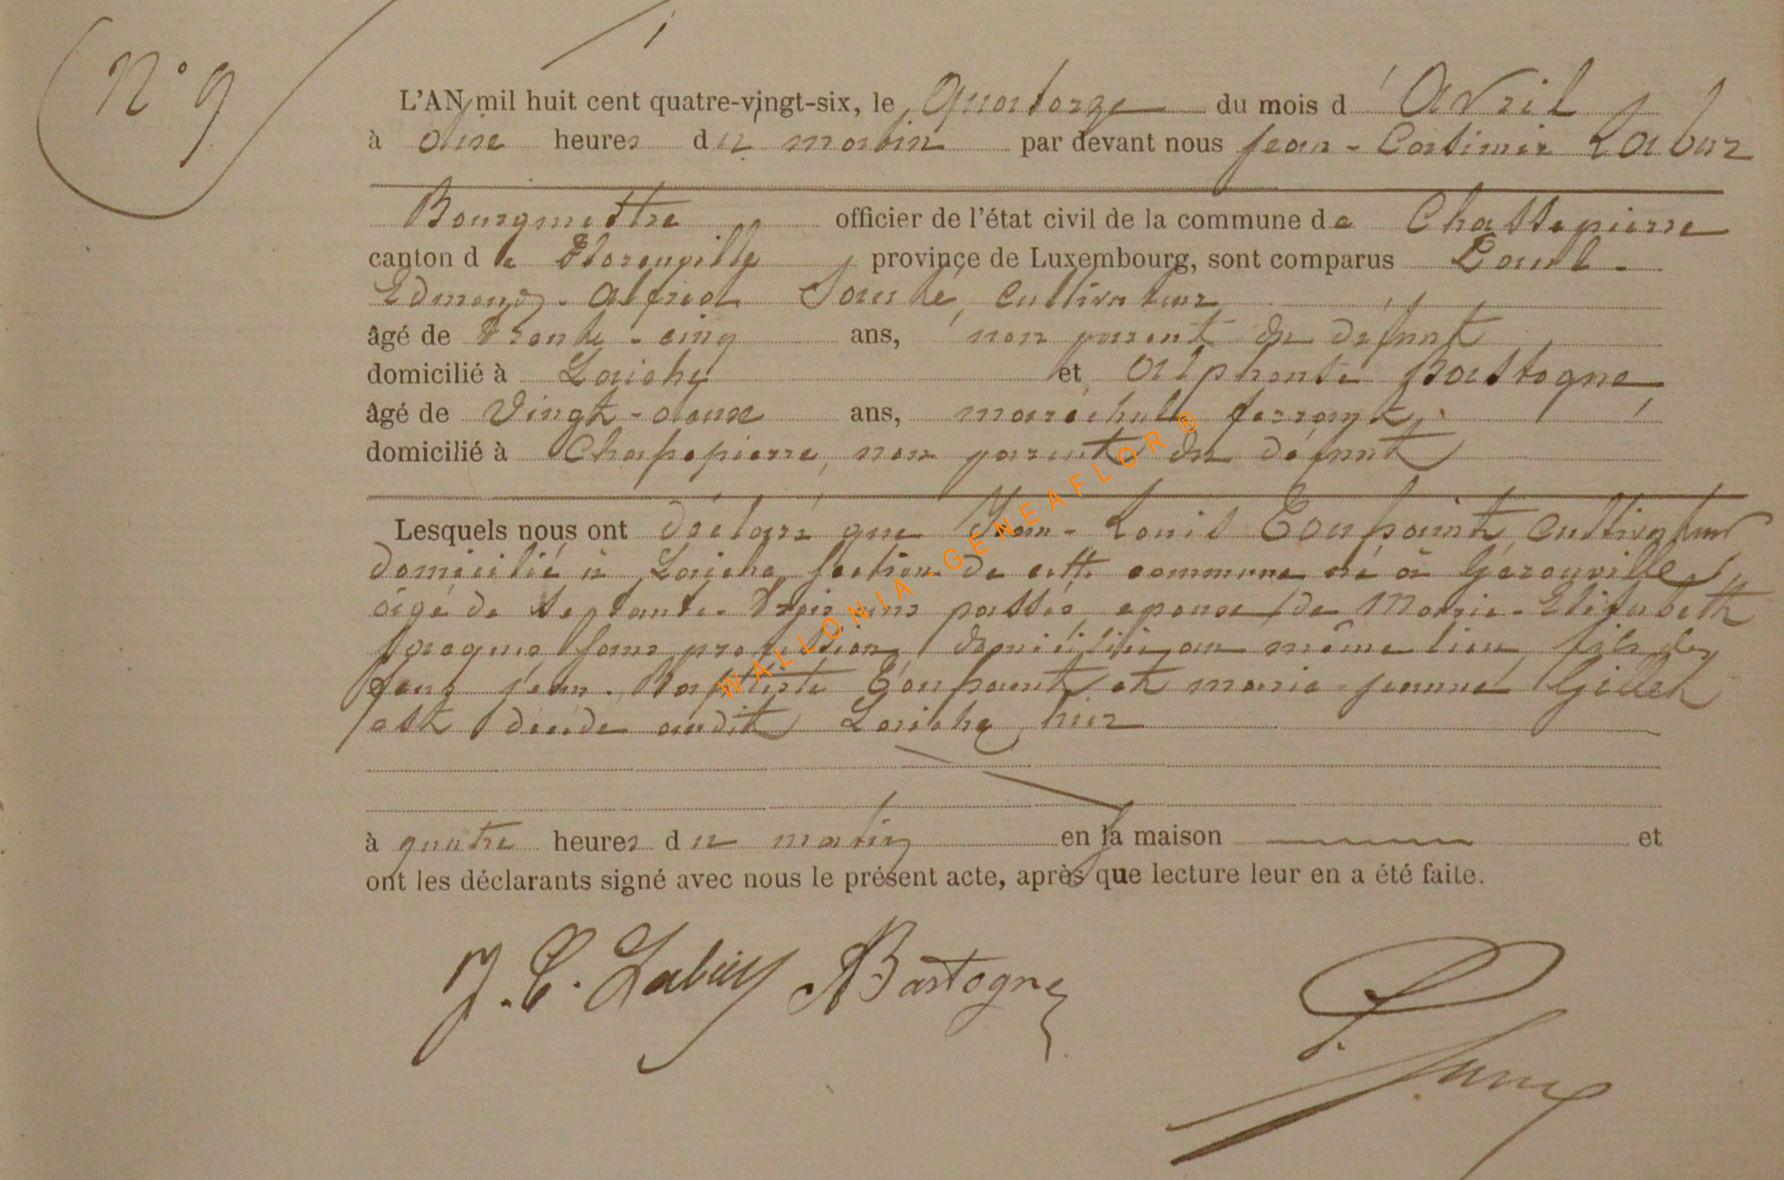 N° 9
L'AN mil huit cent quatre-vingt-six, le Quatorze du mois d'Avril
à heures du matin par devant nous Jean-Casimir Labur
Bourgmestre officier de l'état civil de la commune de Chassepierre
canton de Florenville province de Luxembourg, sont comparus Paul-
Edmond-Alfred cultivateur
âgé de Trente-cinq ans, non parent du défunt
domicilié à Laiche et Alphonse Bastogne
âgé de Vingt-deux ans, maréchal ferrant
domicilié à Chassepierre, non parent du défunt
Lesquels nous ont déclaré que Jean-Louis Toussaint, cultivateur
domicilié à Laiche section de cette commune né à Gérouville
âgé de septante-trois ans passés, epoux de Marie-Elisabeth
sans profession, domiciliée au même lieu, fils de
feus Jean-Baptiste Toussaint et marie-jeanne Gillet
est décédé audit Laiche hier
à quatre heures du matin en la maison et
ont les déclarants signé avec nous le présent acte, après que lecture leur en a été faite.
J. C. Labur ABastogne
WALLONIA-GENEAFLOR®